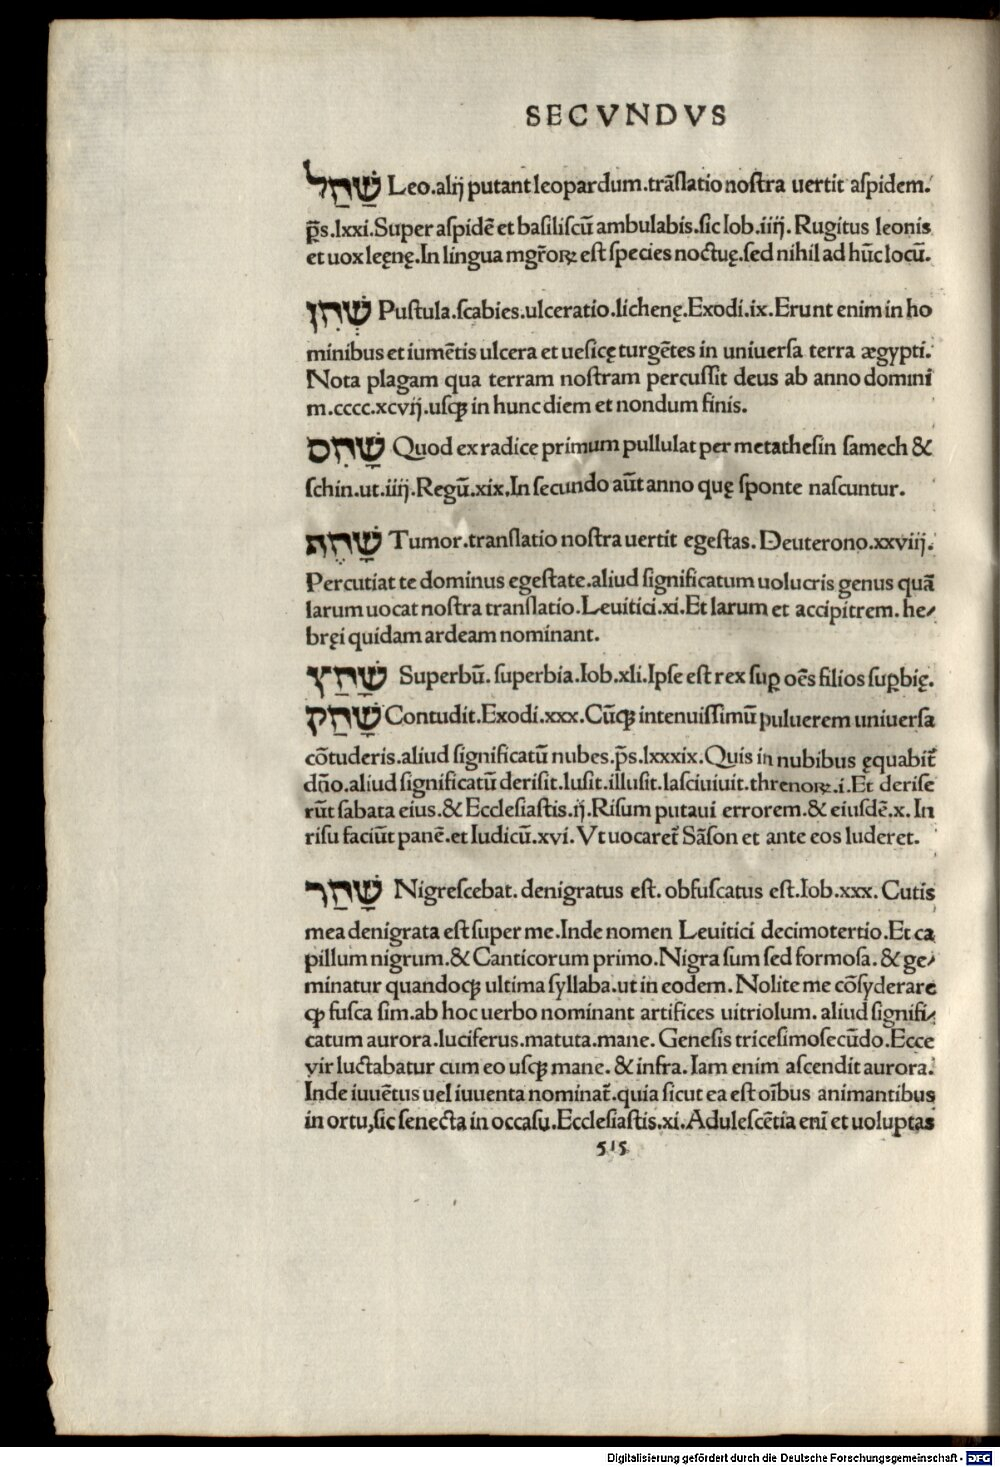 SECVNDVS
שַׁחַל Leo.alij putant leopardum.trãslatio nostra uertit aspidem.
p̃s.lxxi.Super aspidẽ et basiliscũ ambulabis.sic Iob.iiij.Rugitus leonis
et uox leęnę.In lingua mgr̃oꝝ est species noctuę.sed nihil ad hũc locũ.
שְׁחִן Pustula.scabies.ulceratio.lichenę.Exodi.ix.Erunt enim in ho
minibus et iumẽtis ulcera et uesicę turgẽtes in uniuersa terra ægypti.
Nota plagam qua terram nostram percussit deus ab anno domini
m.cccc.xcvij.usqꝫ in hunc diem et nondum finis.
שָׁחִס Quod ex radice primum pullulat per metathesin samech &
schin.ut.iiij.Regũ.xix.In secundo aũt anno quę sponte nascuntur.
שָׁחֶת Tumor.translatio nostra uertit egestas.Deuterono.xxviij.
Percutiat te dominus egestate.aliud significatum uolucris genus quã
larum uocat nostra translatio.Leuitici.xi.Et larum et accipitrem.he⸗
bręi quidam ardeam nominant.
שַׁחַץ Superbũ.superbia.Iob.xli.Ipse est rex suꝑ oẽs filios suꝑbię.
שָׁחַק Contudit.Exodi.xxx.Cũqꝫ in tenuissimũ puluerem uniuersa
cõtuderis.aliud significatũ nubes.p̃s.lxxxix.Quis in nubibus ęquabit̃
dño.aliud significatũ derisit.lusit.illusit.lasciuiuit.threnoꝝ.i.Et derise
rũt sabata eius.& Ecclesiastis.ij.Risum putaui errorem.& eiusdẽ.x.In
risu faciũt panẽ.et Iudicũ.xvi.Vt uocaret̃ Sãson et ante eos luderet.
שָׁחַר Nigrescebat.denigratus est.obfuscatus est.Iob.xxx.Cutis
mea denigrata est super me.Inde nomen Leuitici decimotertio.Et ca
pillum nigrum.& Canticorum primo.Nigra sum sed formosa.& ge⸗
minatur quandoqꝫ ultima syllaba.ut in eodem.Nolite me cõsyderare
qꝫ fusca sim.ab hoc uerbo nominant artifices uitriolum.aliud signifi⸗
catum aurora.luciferus.matuta.mane.Genesis tricesimosecũdo.Ecce
vir luctabatur cum eo usqꝫ mane.& infra.Iam enim ascendit aurora.
Inde iuuẽtus uel iuuenta nominat̃.quia sicut ea est oĩbus animantibus
in ortu,sic senecta in occasu.Ecclesiastis.xi.Adulescẽtia enĩ et uoluptas
515
Digitalisierung gefördert durch die Deutsche Forschungsgemeinschaft - DFG